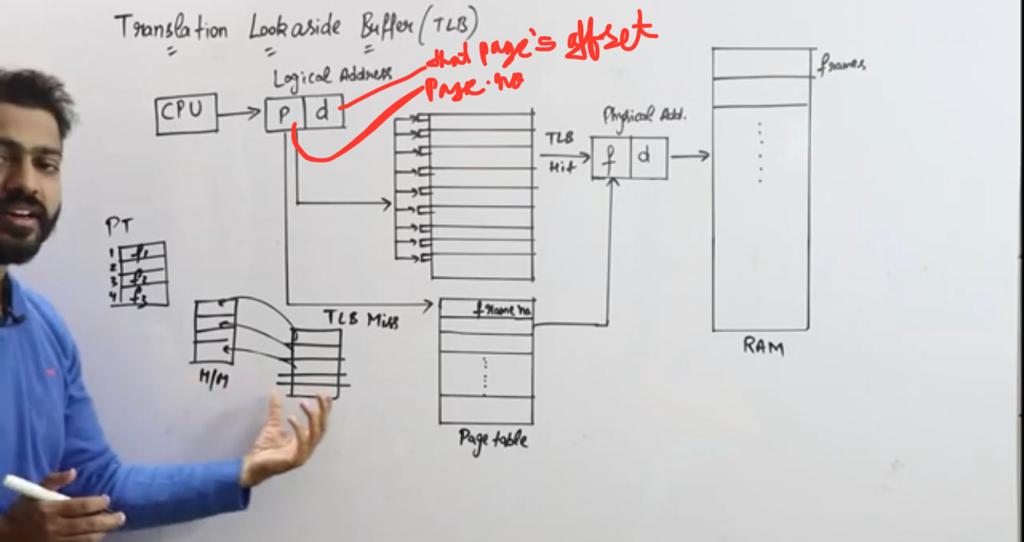 Translation Lookaside Buffer (TLB)
that page's offset
Page.no
Logical Address
CPU
P d
TLB
Hit
Physical Add.
f d
frames
RAM
PT
1 f1
2
3 f2
4 f3
M/M
TLB Miss
frame no
Page table